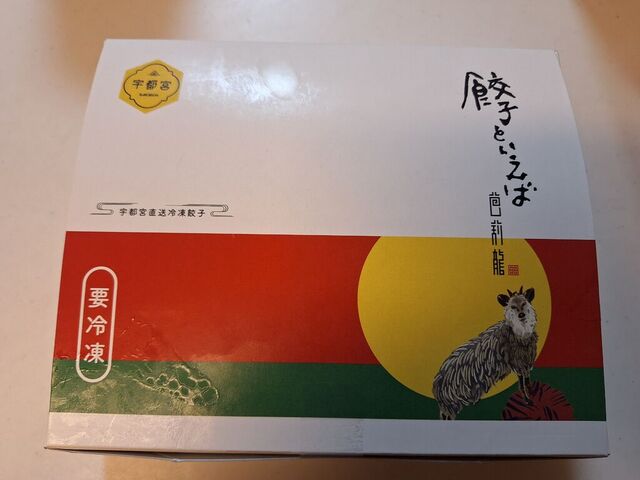 宇都宮
餃子といえば
芭莉龍
宇都宮直送冷凍餃子
要冷凍